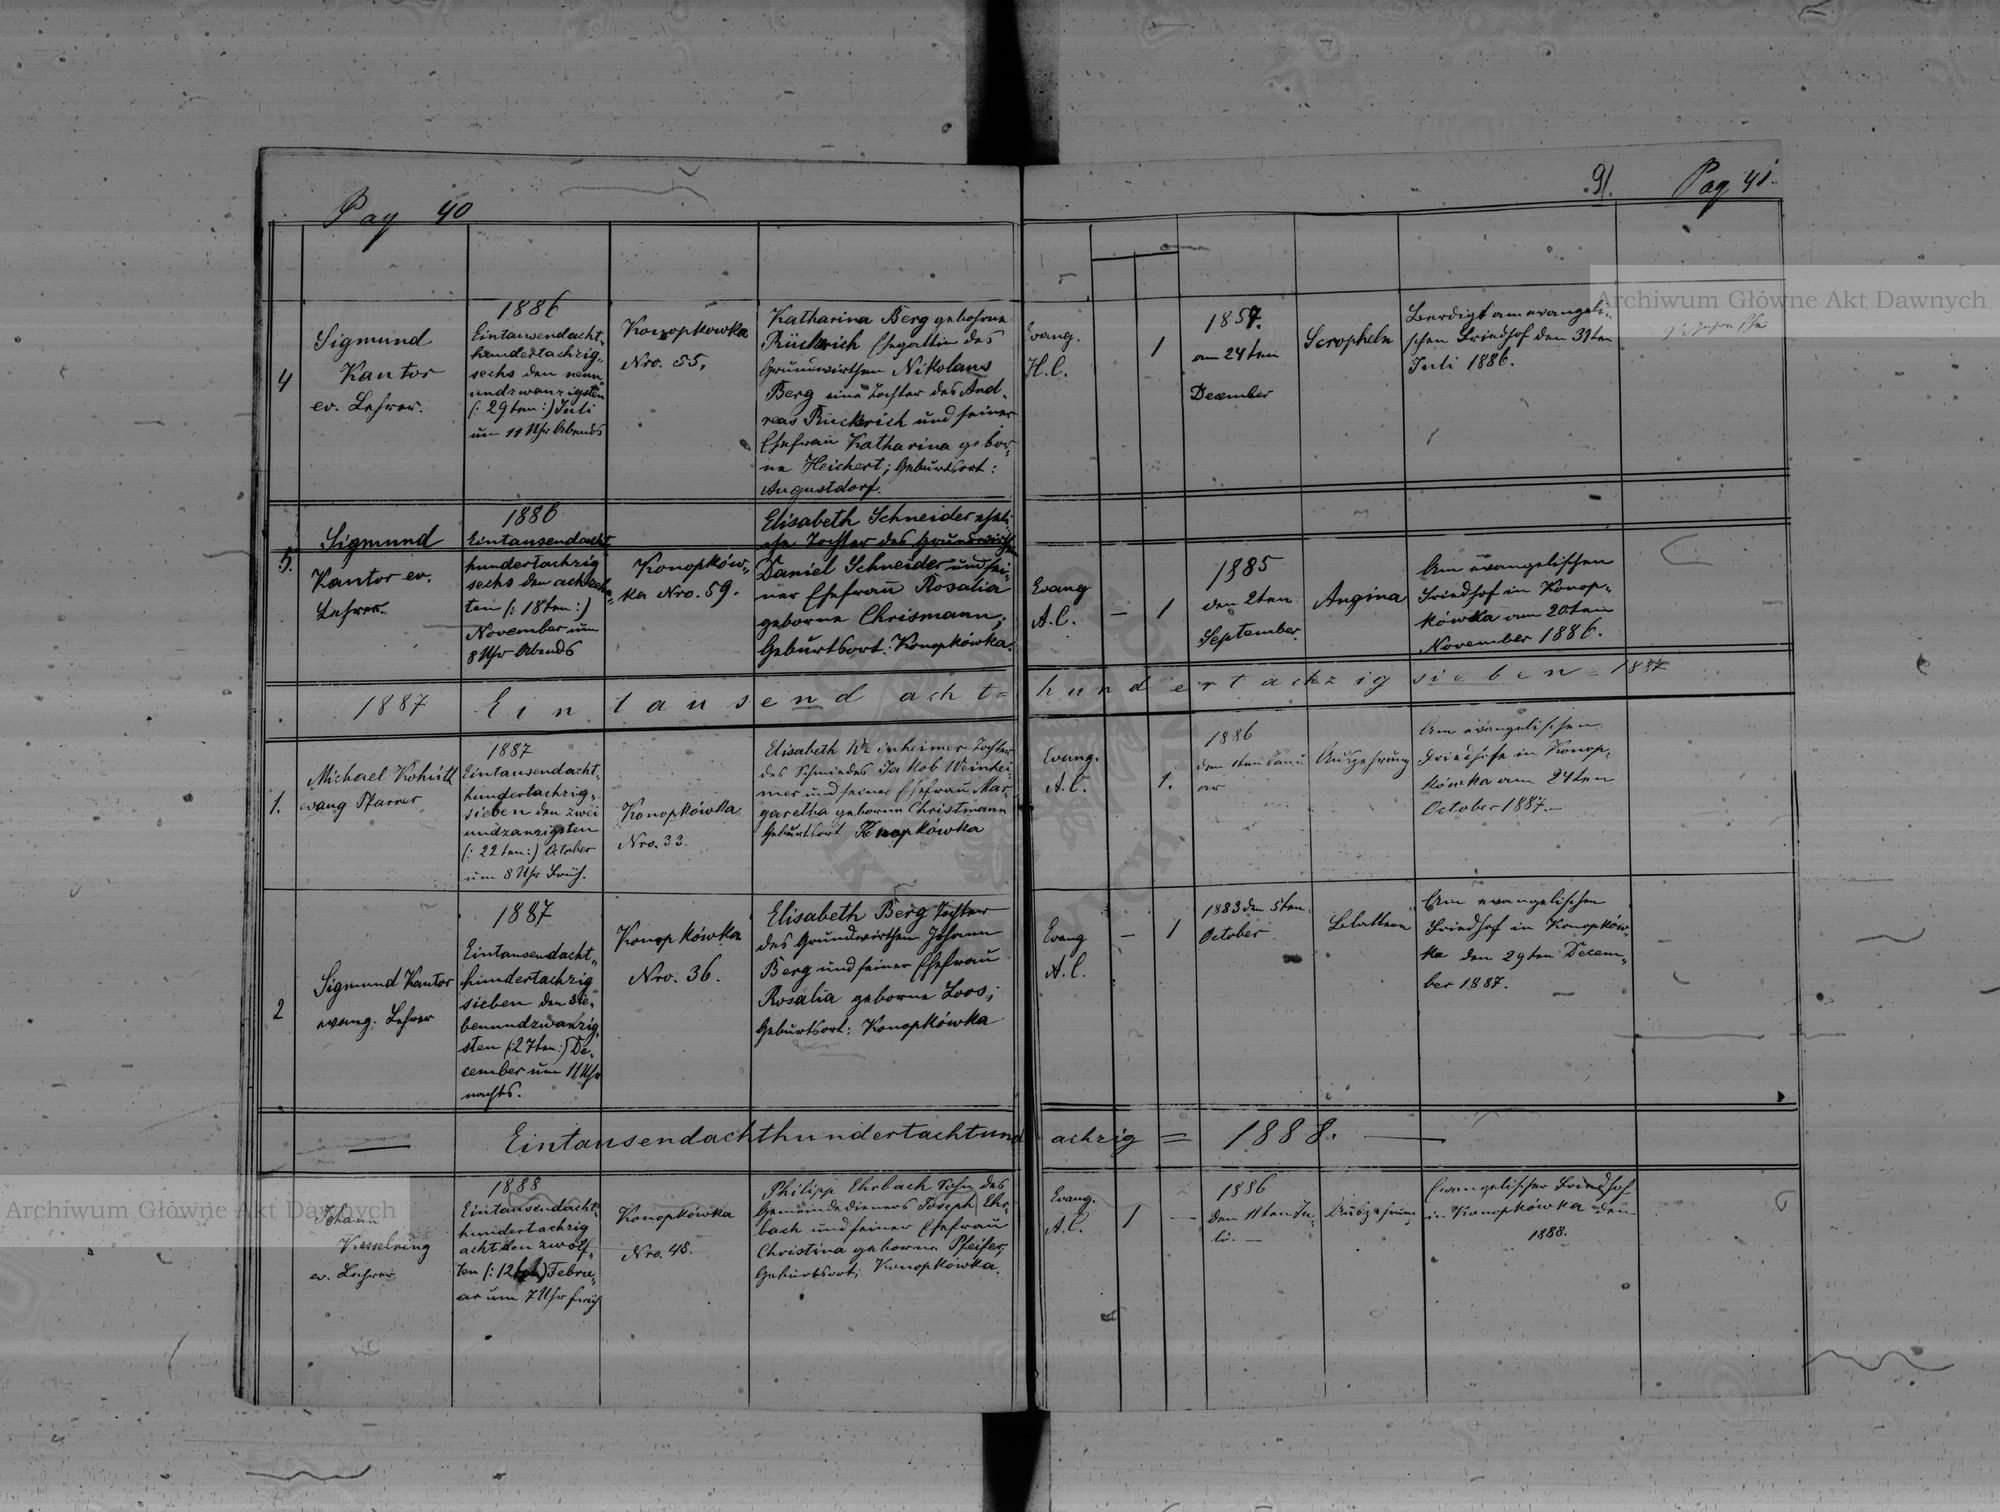 Pag 40
91.
Pag 41.
4
Sigmund
Kantor
ev. Lehrer.
1886
Eintausendacht-
hundertachzig-
sechs den neun
undzwanzigsten
(: 29ten :) Juli
um 11 Uhr Abends
Konopkowka
Nro. 55.
Katharina Berg geborne
Rückrich Ehegattin des
Grundwirthen Nikolaus
Berg eine Tochter des And-
reas Rückrich und seiner
Ehefrau Katharina gebor-
ne Heichert; Geburtsort:
Augustdorf.
Evang.
H.C.
1
1857.
am 24ten
December
Scropheln
Berdigt am evangeli-
schen Friedhof den 31ten
Juli 1886.
5.
Sigmund
Kantor ev.
Lehrer.
1886
Eintausendacht
hundertachzig
sechs den achzehn-
ten (: 18ten :)
November um
8 Uhr Abends
Konopków-
ka Nro. 59.
Elisabeth Schneider eheli-
che Tochter des Grundwirthen
Daniel Schneider und sei-
ner Ehefrau Rosalia
geborne Chrismann;
Geburtsort: Konopkówka.
Evang
A.C.
— 1
1885
den 2ten
September.
Angina
Am evangelischen
Friedhof in Konop-
kówka am 20ten
November 1886.
1887 Eintausend acht= hundertachzig sieben = 1887
1.
Michael Kohutt
evang Pfarrer
1887
Eintausendacht-
hundertachzig-
sieben den zwei
undzanzigsten
(: 22ten :) October
um 8 Uhr Früh.
Konopkówka
Nro. 33.
Elisabeth Weinheimer Tochter
des Schmiedes Jakob Weinhei-
mer und seiner Ehefrau Mar-
garetha geborne Christmann
Geburtsort Konopkówka
Evang.
A.C.
1.
1886
den 1ten Janu
ar
Auszehrung
Am evangelischen
Friedhofe in Konop-
kówka am 24ten
October 1887.—
2
Sigmund Kantor
evang. Lehrer
1887
Eintausendacht-
hundertachzig
sieben den Sie-
benundzwanzig-
sten (: 27ten :) De-
cember um 11 Uhr
nachts.
Konopkówka
Nro. 36.
Elisabeth Berg Tochter
des Grundwirthen Johann
Berg und seiner Ehefrau
Rosalia geborne Loos;
Geburtsort: Konopkówka
Evang
A.C.
— 1
1883 den 5ten
October
Blattern
Am evangelischen
Friedhof in Konopków-
ka den 29ten Decem-
ber 1887.
— Eintausendachthundertachtund achzig = 1888. —
Johann
Kesselring
ev. Lehrer
1888
Eintausendacht-
hundertachzig
acht den zwölf-
ten (: 12ten) Febru-
ar um 7 Uhr früh
Konopkówka
Nro. 45.
Philipp Ehrbach Sohn des
Gemeindedieners Joseph Ehr-
bach und seiner Ehefrau
Christina geborne Pfeifer;
Geburtsort; Konopkówka.
Evang.
A.C.
1 —
1886
den 11ten Ju-
li. —
Auszehrung
Evangelischer Friedhof
in Konopkówka den
1888.
Archiwum Główne Akt Dawnych
Archiwum Główne Akt Dawnych